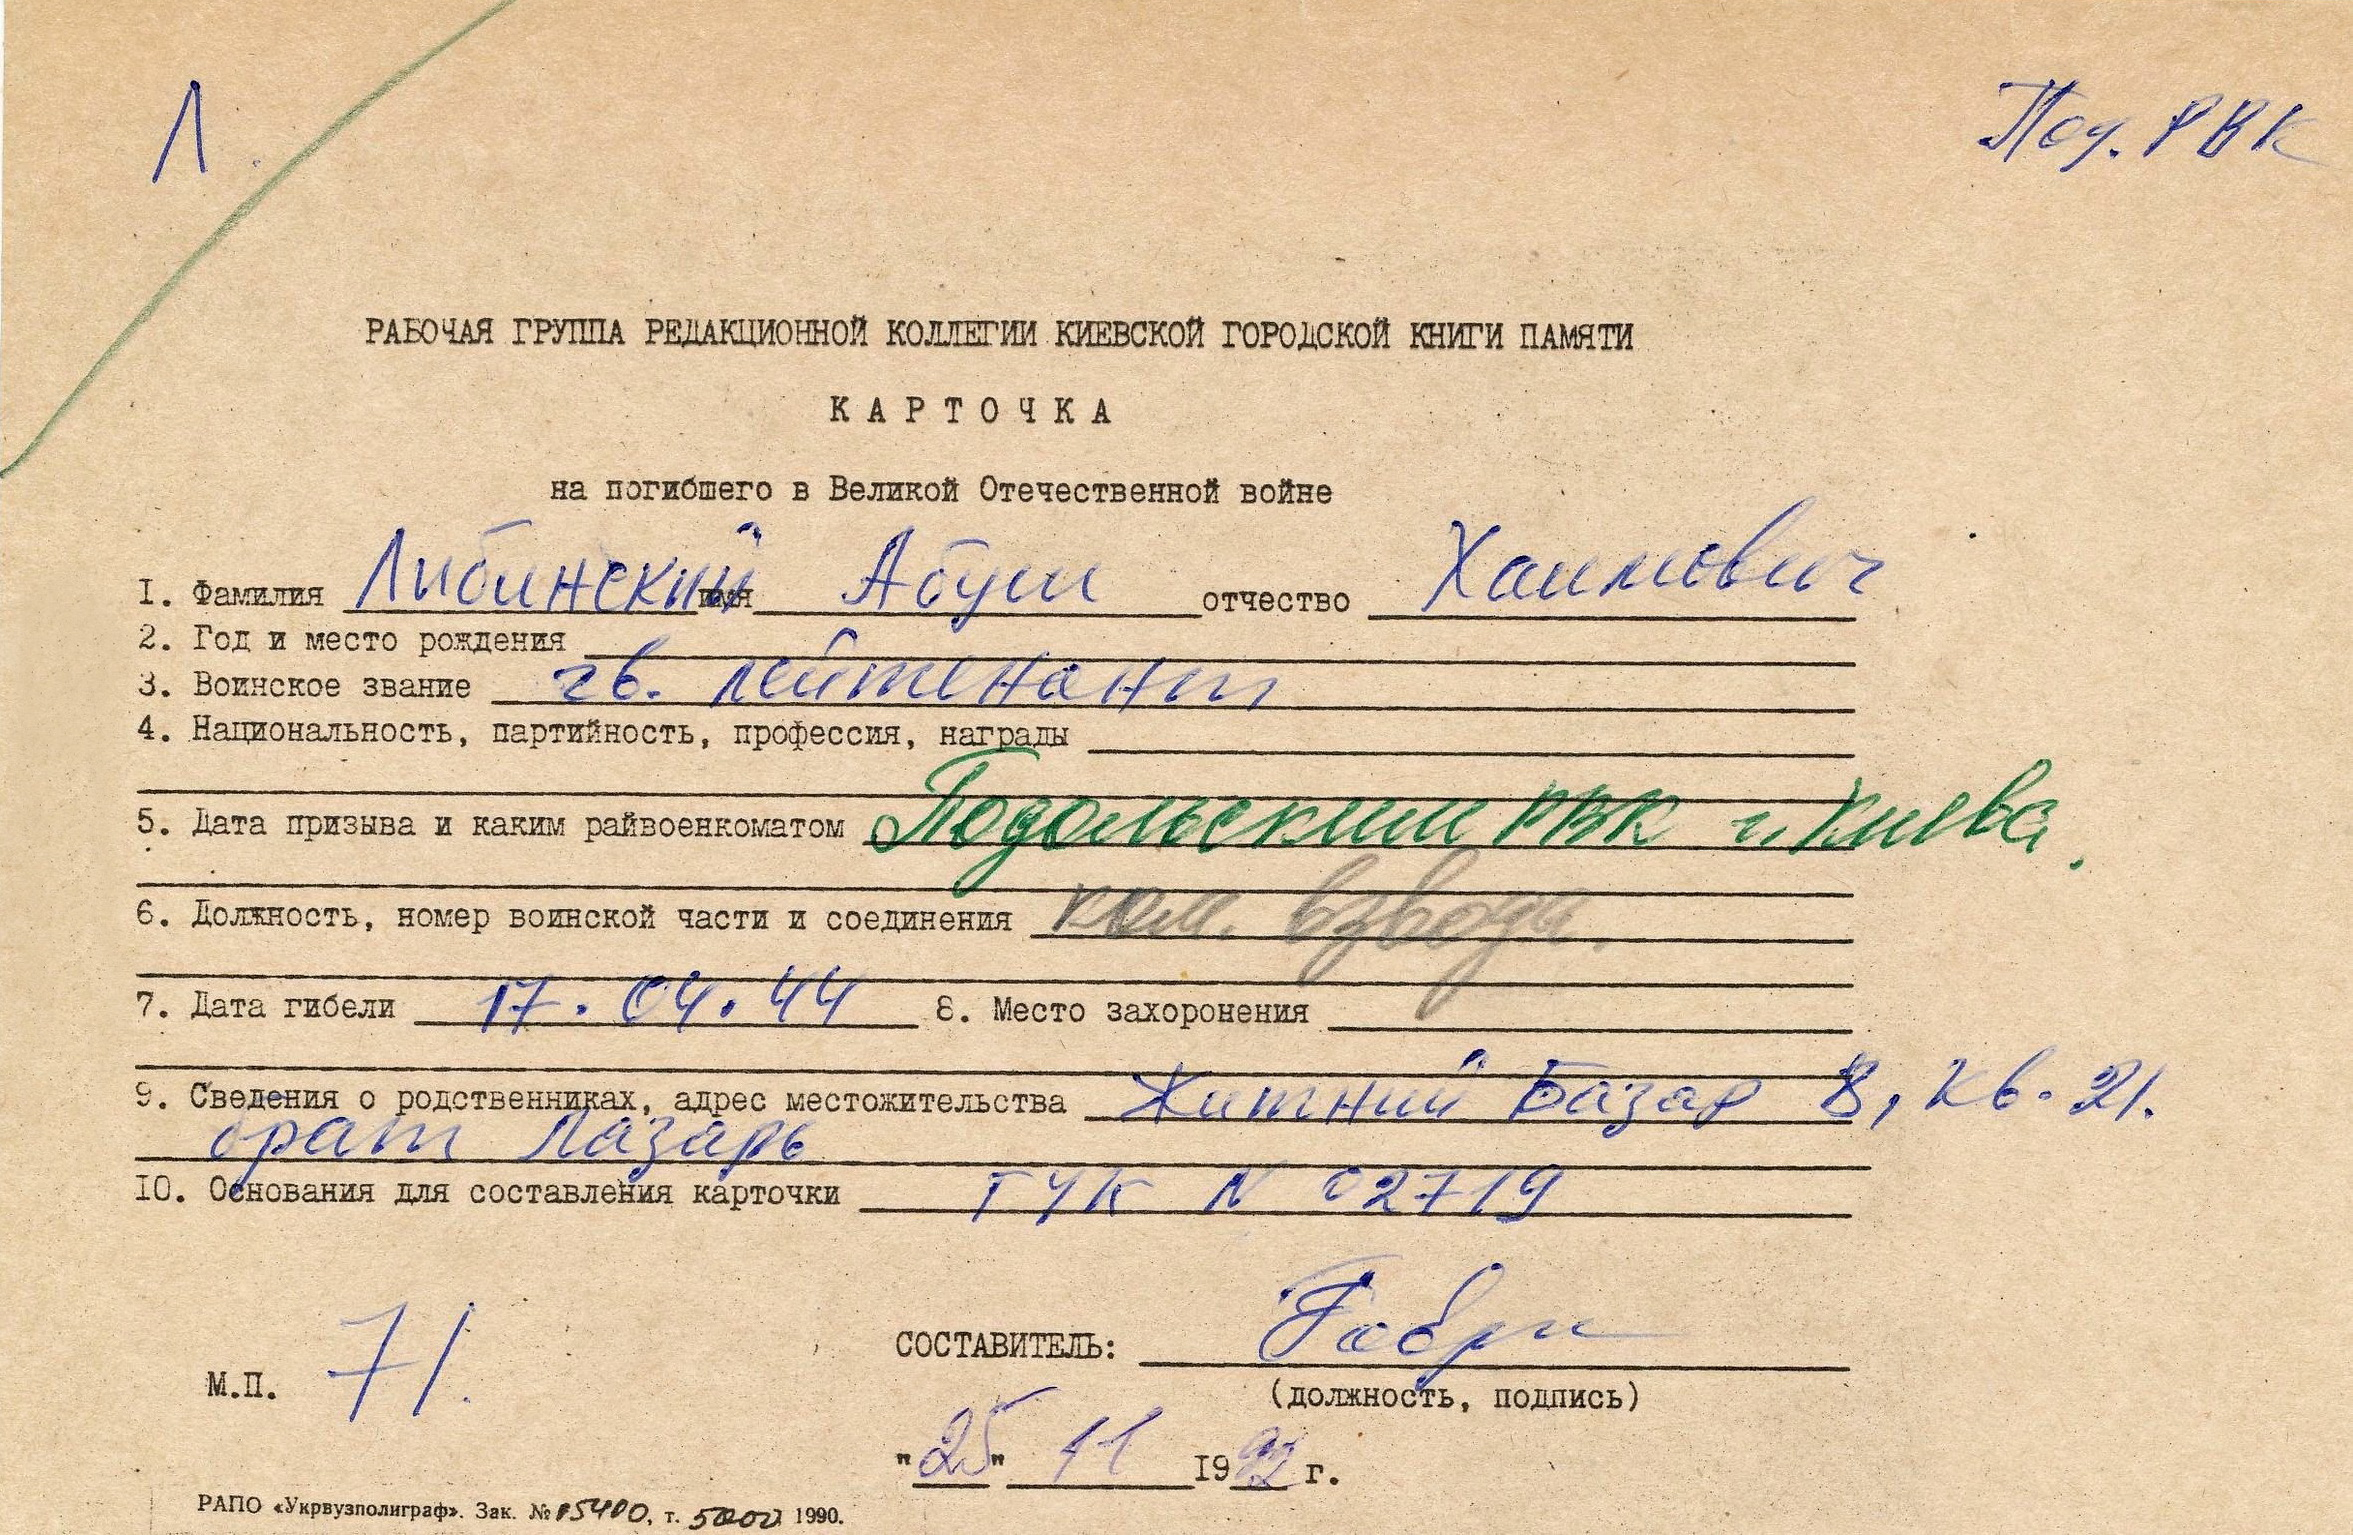 Л.
Под. РВК
РАБОЧАЯ ГРУППА РЕДАКЦИОННОЙ КОЛЛЕГИИ КИЕВСКОЙ ГОРОДСКОЙ КНИГИ ПАМЯТИ
КАРТОЧКА
на погибшего в Великой Отечественной войне
I. Фамилия Либинский имя Абуш отчество Хаимович
2. Год и место рождения
3. Воинское звание гв. лейтенант
4. Национальность, партийность, профессия, награды
5. Дата призыва и каким райвоенкоматом Подольским РВК г. Киева.
6. Должность, номер воинской части и соединения ком. взвода.
7. Дата гибели 17.04.44 8. Место захоронения
9. Сведения о родственниках, адрес местожительства Житний Базар 8, кв. 21.
брат Лазарь
IO. Основания для составления карточки ГУК N 02719
СОСТАВИТЕЛЬ:
М.П. 71.
(должность, подпись)
"25" 11 1992 г.
РАПО «Укрвузполиграф». Зак. № 5400, т. 5000 1990.